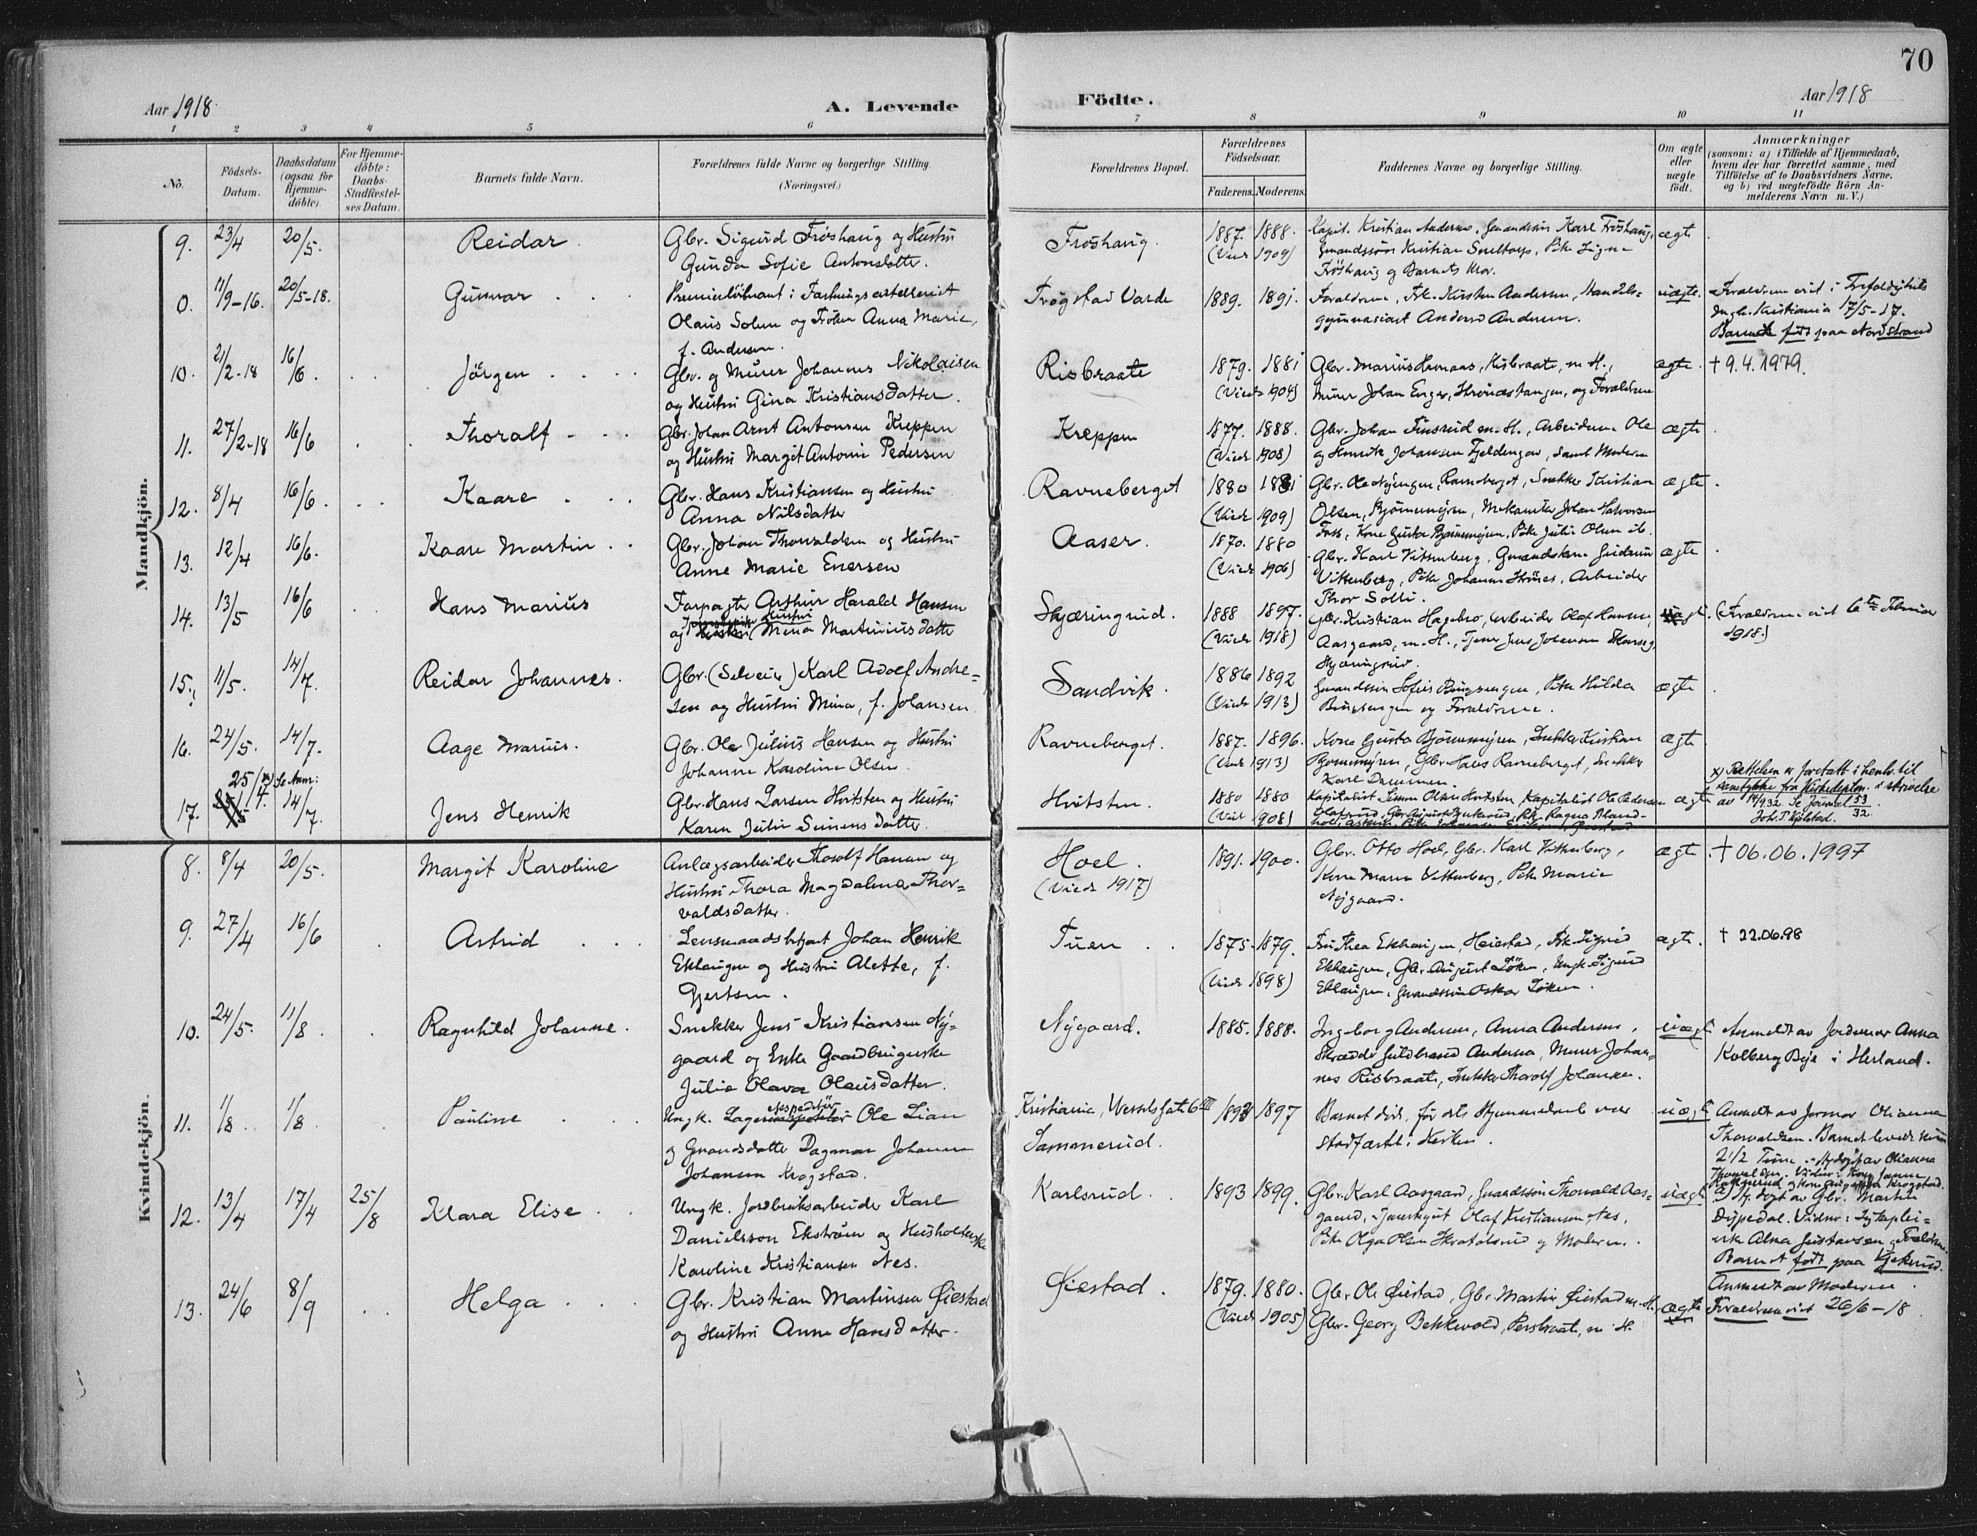 70
Aar 1918
A. Levende
Fødte.
Aar 1918
1 2 3 4 5 6 7 8 9 10 11
No.
Fødsels-Datum.
Daabsdatum (ogsaa for Hjemme-døbte).
For Hjemme-døbte: Daabs-Stadfæstel-ses Datum.
Barnets fulde Navn.
Forældrenes fulde Navne og borgerlige Stilling (Næringsvei.)
Forældrenes Bopæl.
Forældrenes Fødselsaar.
Faderens. Moderens.
Faddernes Navne og borgerlige Stilling.
Om ægte eller uægte født.
Anmærkninger
(saasom: a) i Tilfælde af Hjemmedaab, hvem der har forrettet samme, med Tilføielse af to Daabsvidners Navne, og b) ved uægtefødte Børn An-melderens Navn m. V.)
Mandkjön.
9. 23/4 20/5. Reidar. Gbr. Sigurd Frøshaug og Hustru
Gunda Sofie Antonsdatter.
Frøshaug. 1887. 1888. (Viede 1909)
Kapit. Kristian Andersen, Gaardssøn Karl Frøshaug,
Gaardssøn Kristian
Frøshaug og Barnets Mor.
ægte
0. 11/9-16. 20/5-18. Gunnar
Premierløitnant i Fæstningsartilleriet
Olaus Solem og Frøken Anna Marie,
f. Andersen.
Trøgstad Varde 1889. 1891.
Forældrene, Frk. Kirsten Andersen, Handels-
gymnasiast Anders Andersen.
uægte.
Forældrene viet i Trefoldighets
Mgh. Kristiania 17/5-17.
Barnet født paa Nordstrand
10. 21/2-18 16/6. Jörgen
Gbr. og Murer Johannes Nikolaisen
og Hustru Gina Kristiansdatter.
Risbraate 1879. 1881 (Viede 1904)
Gbr. Marius Hermans, Risbraate, m. H.,
Murer Johan Enger, Strøndstangen, og Forældrene
ægte. † 9.4.1979.
11. 27/2-18 16/6 Thoralf
Gbr. Johan Arnt Antonsen Kreppen
og Hustru Margit Antoni Pedersen
Kreppen 1877. 1888. (Viede 1908)
Gbr. Johan Finsrud m. H., Arbeiderne Ole
og Henrik Johansen Fjeldengen, samt Moderen
ægte
12. 8/4 16/6. Kaare
Gbr. Hans Kristiansen og Hustru
Anna Nilsdatter
Ravneberget 1880 1881 (Viede 1909)
Gbr. Ole Nyengen, Ravneberget, Snekker Kristian
Olsen, Bjørnmyren, Mekaniker Johan Halvorsen
Foss, Kone Gusta Bjørnmyren, Pike Julie Olsen ib.
ægte
13. 12/4 16/6. Kaare Martin
Gbr. Johan Thorvaldsen og Hustru
Anne Marie Enersen
Aaser. 1870. 1880 (Viede 1906)
Gbr. Karl Vittenberg, Gaardskone Gudrun
Vittenberg, Pike Johanne Strønes, Arbeider
Thor Solli.
ægte
14. 13/5 16/6 Hans Marius
Forpagter Arthur Harald Hansen
og Hustru Mina Martiniusdatter
Skjæringrud. 1888 1897. (Viede 1918)
Gbr. Kristian Hagebro, Arbeider Olaf Hansen,
Aasgaard, m. H., Tjener Jens Johansen
Skjæringrud.
ægte. (Forældrene viet 6te Februar
1918)
15. 11/5. 14/7. Reidar Johannes.
Gbr. (Selveier) Karl Adolf Andre-
sen og Hustru Mina, f. Johansen
Sandvik. 1886 1892 (Viede 1913)
Gaardssøn Sofus Bingsengen, Pike Hilda
Bingsengen og Forældrene.
ægte
16. 24/5. 14/7. Aage Marius.
Gbr. Ole Julius Hansen og Hustru
Johanne Karoline Olsen
Ravneberget. 1887. 1896. (Viede 1913)
Kone Gusta Bjørnmyren, Snekker Kristian
Bjørnmyren, Gbr. Hans Ravneberget, Snekker
Karl Dammen
ægte
17. 25/4. x) Se Anm: 14/7. Jens Henrik
Gbr. Hans Larsen Hvitsten og Hustru
Karen Julie Simensdatter.
Hvitsten 1880 1880 (Viet 1908)
Kapitalist Simen Olsen Hvitsten, Kapitalist Ole Pedersen
ægte
x) Rettelsen er foretatt i henh. til
samtykke fra Kirkedepm. i skrivelse
av 14/9 32 Se Journal 53/32.
Joh. T. Kjølstad.
Kvindekjön.
8. 8/4 20/5. Margit Karoline
Anlægsarbeider Thorolf Hansen og
Hustru Thora Magdalena Thor-
valdsdatter.
Hoel. (Viede 1917) 1891. 1900.
Gbr. Otto Hoel, Gbr. Karl Vittenberg,
Kone Maren Vittenberg, Pike Marie
Nygaard.
ægte. † 06.06.1997
9. 27/4 16/6 Astrid
Lensmandsbetjent Johan Henrik
Ekhaugen og Hustru Alette, f.
Gjertsen.
Tuen 1875. 1879. (Viede 1898)
Fru Thea Ekhaugen, Heiestad, Frk. Sigrid
Ekhaugen, Gbr. August Løken, Ungk. Sigurd
Ekhaugen, Gaardssøn Oskar Løken.
ægte. † 22.06.98
10. 24/5. 11/8 Ragnhild Johanne.
Snekker Jens Kristiansen Ny-
gaard og Enke Gaardbrugerske
Julie Olava Olausdatter.
Nygaard. 1885. 1888.
Ingeborg Andersen, Anna Andersen,
Skrædder Hildebrand Andersen, Murer Johan-
nes Risbraate, Snekker Thorolf Johansen.
uægte
Anmeldt av Jordemor Anna
Kolberg Bøe i Herland.
11. 1/8 1/8. Pauline
Ungk. Lagerekspeditør Ole Lian
og Gaardsdatter Dagmar Johanne
Johansen Krogstad.
Kristiania, Wesselsgate 6 III
Sammerud.
1892 1897
Barnet døde, før dets Hjemmedaab var
stadfæstet i Kirken.
uægte
Anmeldt av Jormor Olianna
Thorvaldsen. Barnet levede kun
2 1/2 Time. Hj.døpt av Olianna
Thorvaldsen.
12. 13/4 17/4 25/8 Klara Elise
Ungk. Jordbruksarbeider Karl
Danielsson Ekstrøm og Husholderske
Karoline Kristiansen Nes.
Karlsrud 1893 1899.
Gbr. Karl Aasgaard, Gaardssøn Thorvald Aas-
gaard, Tjenestegut Olaf Kristiansen Nes,
Pike Olga Olsen Skratelsrud og Moderen.
uægte
Hj. døpt av Gbr. Martin
Dypedal. Vidner: Sykeplei-
erske Alma Gustavsen, Forældrene.
Barnet født paa Gjekerud.
Anmeldt av Moderen.
Forældrene viet 26/6-18
13. 24/6 8/9 Helga
Gbr. Kristian Martinsen Øiestad
og Hustru Anna Hansdatter.
Øiestad. 1879. 1880. (Viede 1905)
Gbr. Ole Øiestad, Gbr. Martin Øiestad m. H.
Gbr. Georg Bekkevold, Persbraate, m. H.
ægte